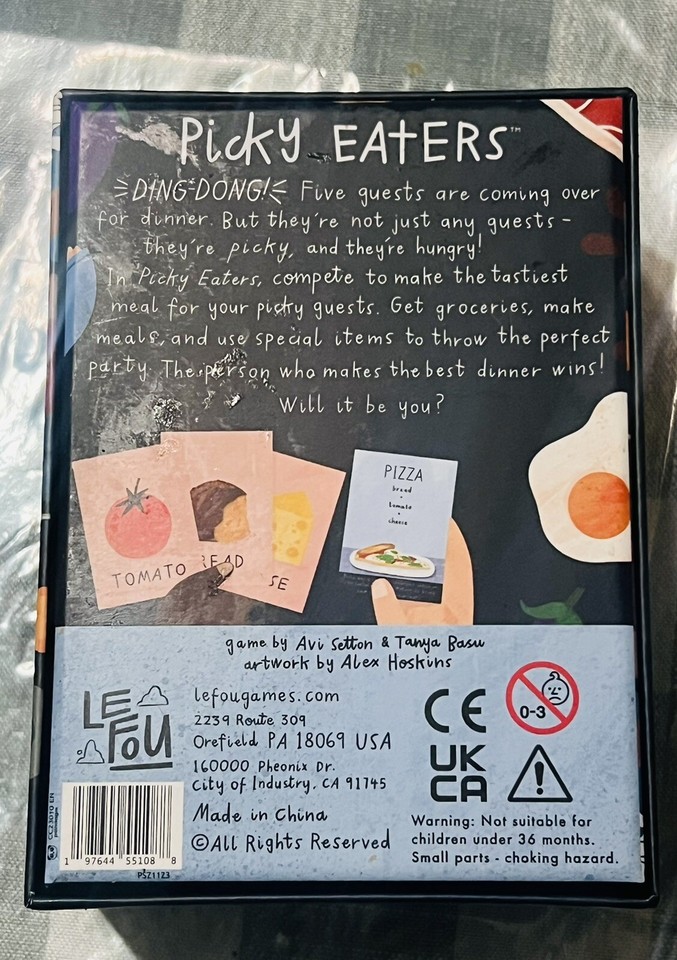 Picky EATERS™
DING-DONG! Five guests are coming over
for dinner. But they're not just any guests -
they're picky, and they're hungry!
In Picky Eaters, compete to make the tastiest
meal for your picky guests. Get groceries, make
meals, and use special items to throw the perfect
party. The person who makes the best dinner wins!
Will it be you?
PIZZA
bread
+
tomato
+
cheese
TOMATO
READ
SE
game by Avi Setton & Tanya Basu
artwork by Alex Hoskins
LE FOU
lefougames.com
2239 Route 309
Orefield PA 18069 USA
160000 Pheonix Dr.
City of Industry, CA 91745
Made in China
©All Rights Reserved
CE
0-3
UK
CA
!
Warning: Not suitable for
children under 36 months.
Small parts - choking hazard.
CC23010 EN
1 97644 55108 8
PSZ1123